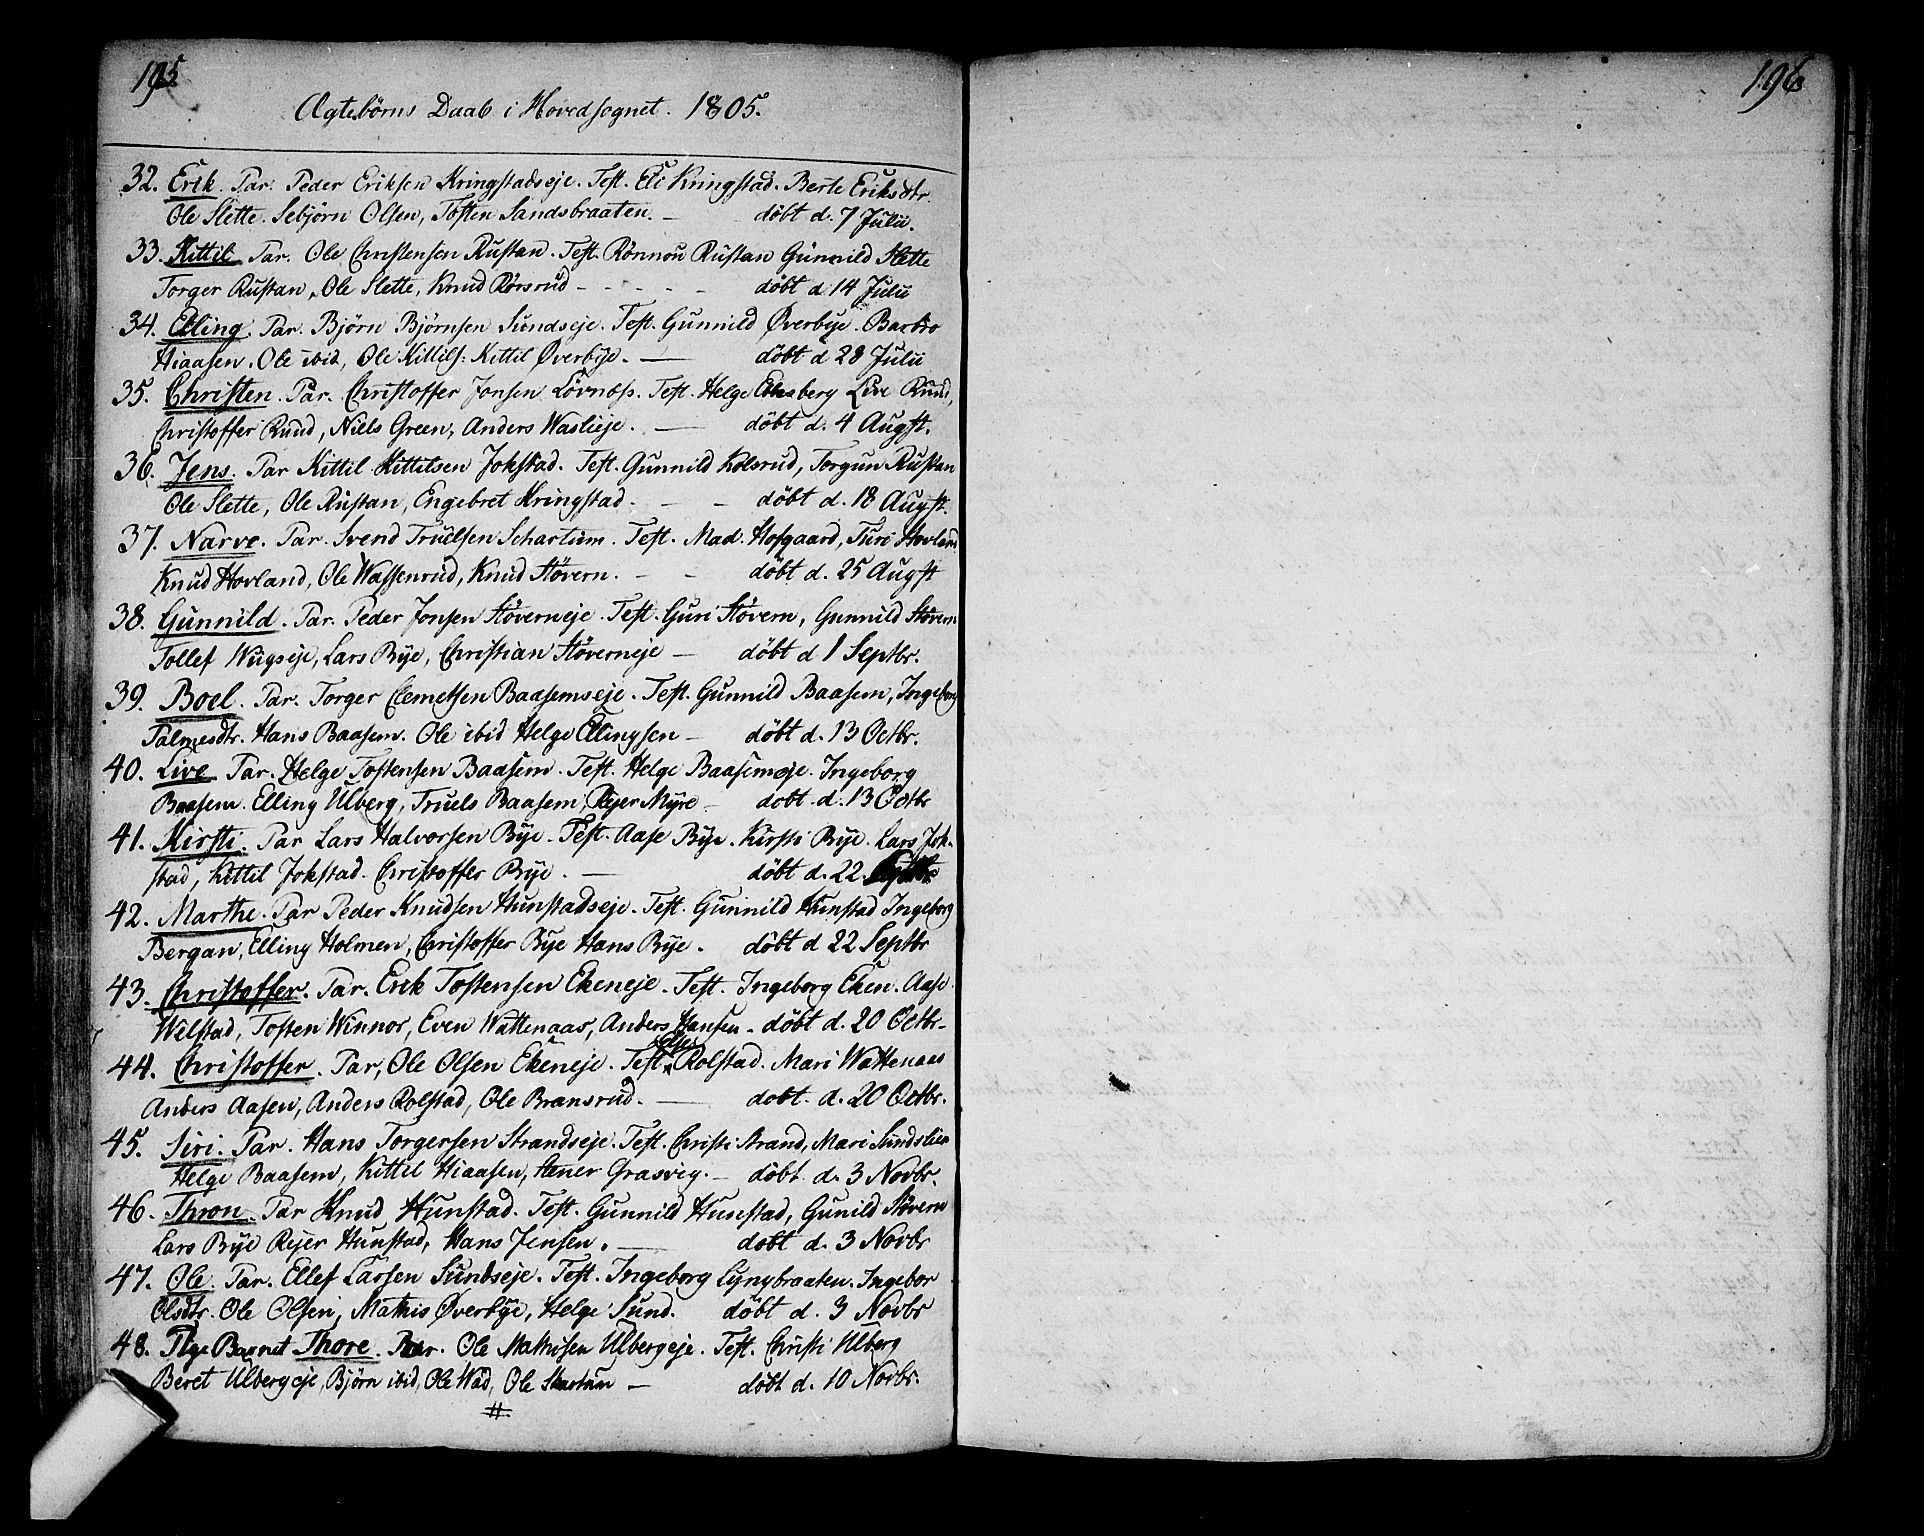 195
Ægtebørns Daab i Hovedsognet. 1805.
32. Erik. Par. Peder Eriksen Kringstadseje. Test. Eli Kringstad. Berte Eriksdtr.
Ole Slette. Sebjørn Olsen, Tosten Sandsbraaten. — döbt d. 7 Julii.
33. Kittil. Par. Ole Christensen Rustan. Test. Rönnou Rustan Gunnild Slette
Torger Rustan, Ole Slette, Knud Rörsrud - - - - - döbt d 14 Julii
34. Elling. Par. Björn Björnsen Sundseje. Test. Gunnild Øverbye. Barbro
Hiaasen. Ole ibid, Ole Kittils: Kittil Øverbye. — döbt d 28 Julii
35. Christen. Par. Christoffer Jonsen Lövnæss. Test. Helge Live Ruud,
Christoffer Ruud, Niels Green, Anders Waslieje. — döbt d. 4 Augst.
36. Jens. Par Kittil Kittilsen Jokstad. Test. Gunnild Kolsrud, Torgun Rustan
Ole Slette, Ole Rustan, Engebret Kringstad. — — döbt d. 18 Augst.
37. Narve. Par. Svend Truelsen Schartum. Test. Mad. Hofgaard, Turi Hovland
Knud Hovland, Ole Wassenrud, Knud Støvern. - - döbt d. 25 Augst
38. Gunnild. Par. Peder Jonsen Støverneje. Test. Guri Støvern, Gunnild Støvern
Tollef Wugseje, Lars Bye, Christian Støverneje — döbt d 1 Septbr.
39. Boel. Par. Torger Clemetsen Baasemseje. Test. Gunnild Baasem, Ingeborg
Palmesdtr. Hans Baasem. Ole ibid Helge Ellingsen — döbt d. 13 Octbr.
40. Live Par. Helge Tostensen Baasem. Test. Helge Baasemseje. Ingeborg
Baasem. Elling Ulberg, Truels Baasem, Rejer Myre — dobt d. 13 Octbr
41. Kirsti. Par Lars Halvorsen Bye. Test. Aase Bye. Kirsti Bye. Lars Jok-
stad, Kittil Jokstad. Christoffer Bye. — döbt d. 22.
42. Marthe. Par Peder Knudsen Hunstadseje. Test. Gunnild Hunstad Ingeborg
Bergan, Elling Holmen, Christoffer Bye Hans Bye. döbt d 22 Septbr
43. Christoffer. Par. Erik Tostensen Ekeneje. Test. Ingeborg Eken. Aase
Welstad, Tosten Winnor, Even Wattenaas, Anders Hansen - döbt d. 20 Octbr-
44. Christoffer. Par, Ole Olsen Ekeneje. Test. Rolstad. Mari Wattenaas
Anders Aasen, Anders Rolstad, Ole Bransrud. — dobt. d. 20 Octbr.
45. Siri. Par. Hans Torgersen Strandseje. Test. Christi Strand, Mari Sundslien
Helge Baasem, Kittil Hiaasen, Stener Grasvig. — döbt d. 3 Novbr.
46. Thron. Par Knud Hunstad. Test. Gunnild Hunstad, Gunild Støvern
Lars Bye Rejer Hunstad, Hans Jensen. — dobt d. 3 Novbr
47. Ole. Par. Ellef Larsen Sundseje. Test. Ingeborg Lyngbraaten. Ingebor
Olsdtr. Ole Olsen, Mathis Øverbye, Helge Sund. döbt d. 3 Novbr
48. Barnet Thore. Par. Ole Mathisen Ulbergeje. Test. Christi Ulberg
Beret Ulbergeje, Björn ibid, Ole Wad, Ole Skartum — döbt d. 10 Novbr.
196